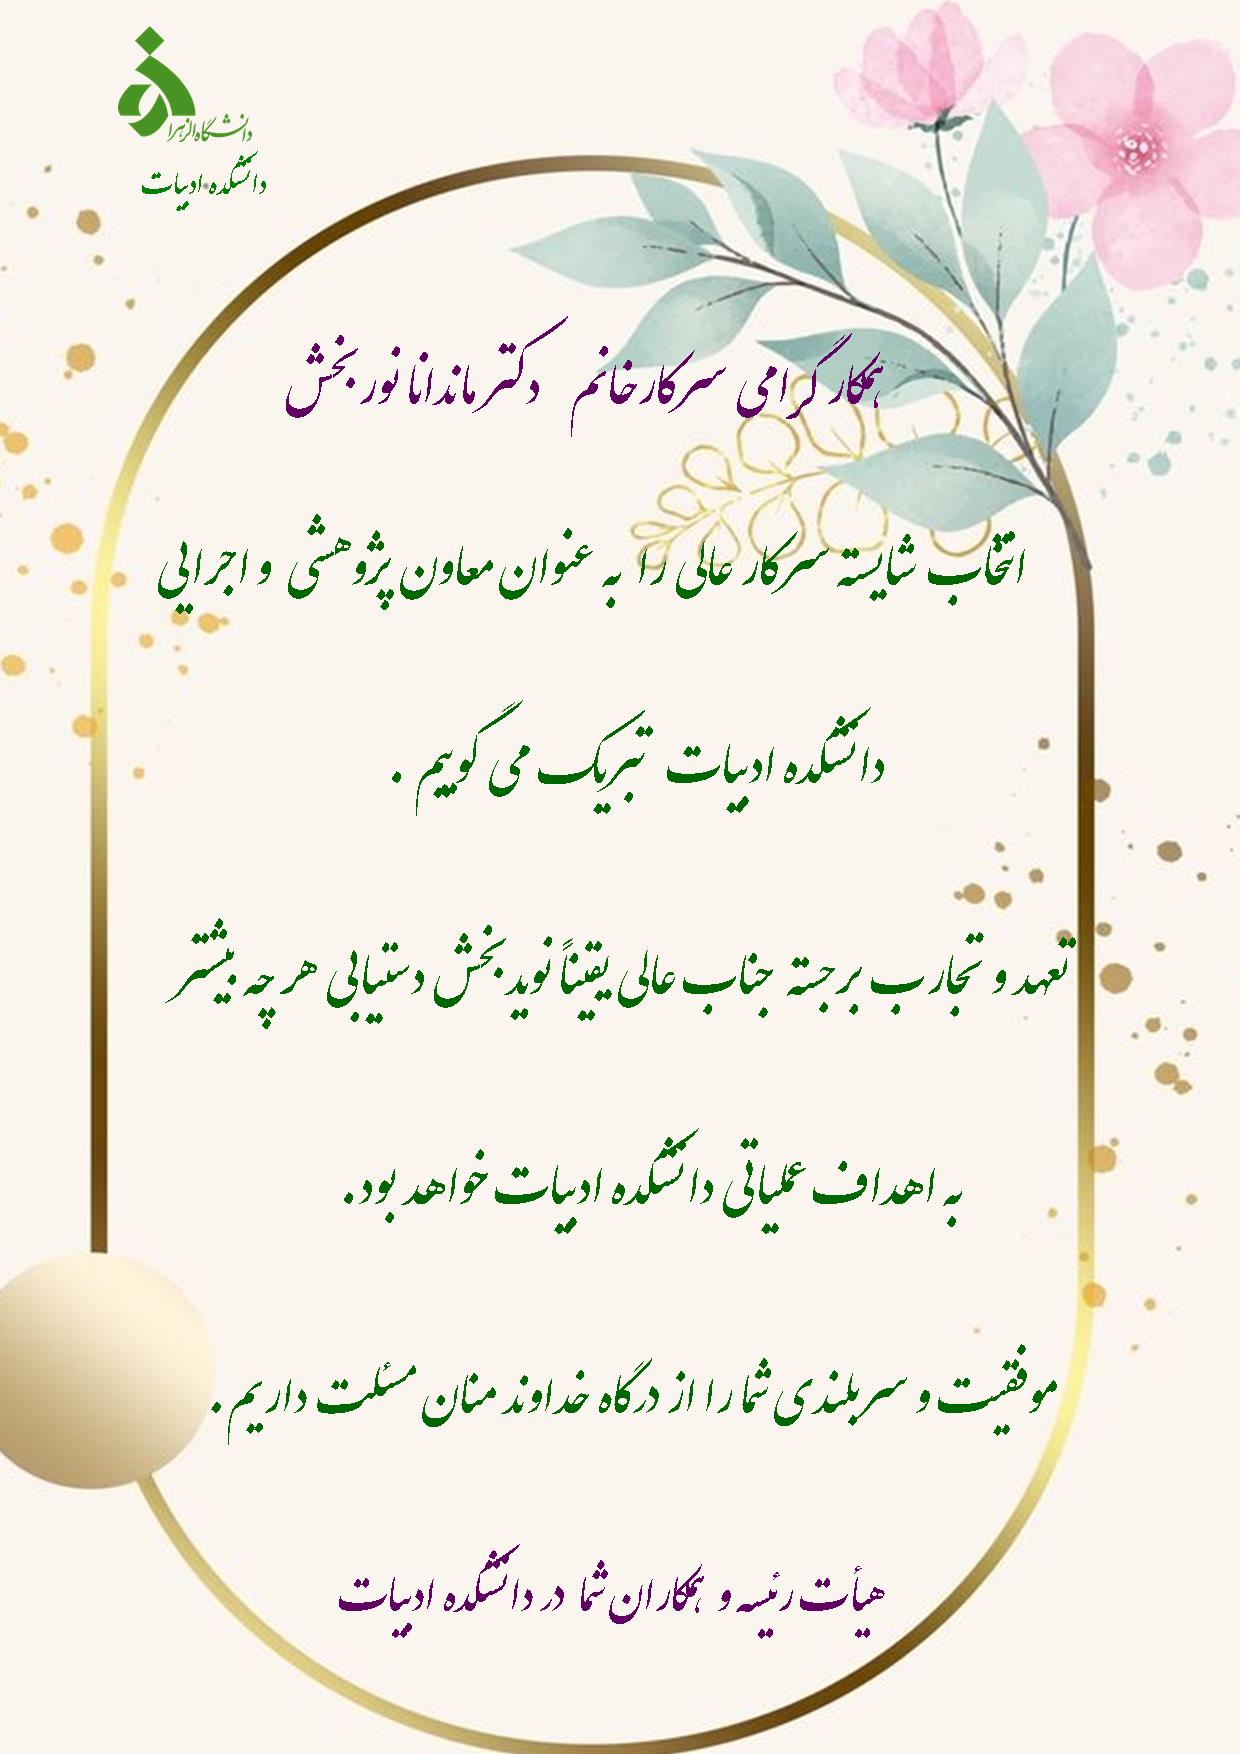 دانشگاه الزهرا
دانشکده ادبیات
همکار گرامی سرکار خانم دکتر ماندانا نوربخش
انتخاب شایسته سرکار عالی را به عنوان معاون پژوهشی و اجرایی
دانشکده ادبیات تبریک می گوییم .
تعهد و تجارب برجسته جناب عالی یقیناً نوید بخش دستیابی هر چه بیشتر
به اهداف عملیاتی دانشکده ادبیات خواهد بود.
موفقیت و سربلندی شما را از درگاه خداوند منان مسئلت داریم .
هیأت رئیسه و همکاران شما در دانشکده ادبیات